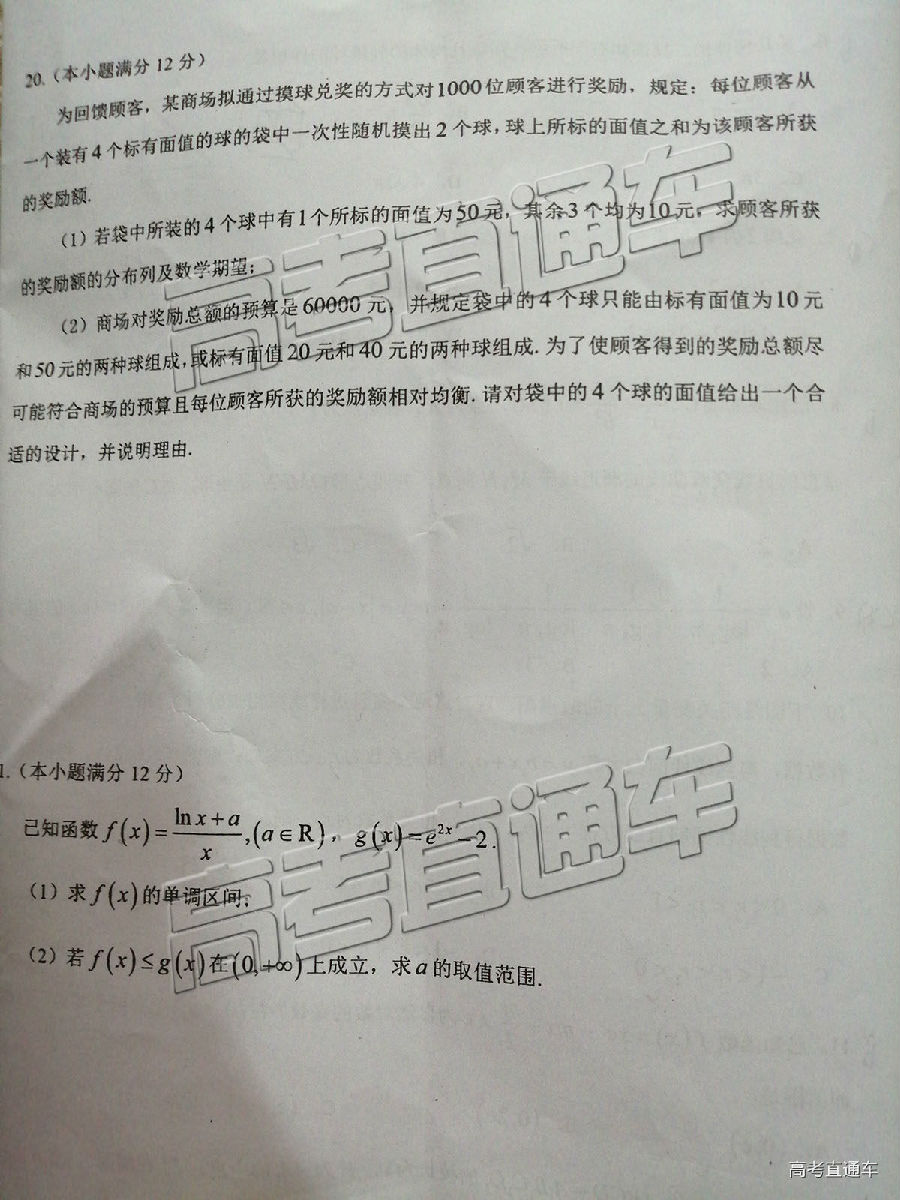 20.（本小题满分12分）
为回馈顾客，某商场拟通过摸球兑奖的方式对1000位顾客进行奖励，规定：每位顾客从
一个装有4个标有面值的球的袋中一次性随机摸出2个球，球上所标的面值之和为该顾客所获
的奖励额.
（1）若袋中所装的4个球中有1个所标的面值为50元，其余3个均为10元，求顾客所获
的奖励额的分布列及数学期望；
（2）商场对奖励总额的预算是60000元，并规定袋中的4个球只能由标有面值为10元
和50元的两种球组成，或标有面值20元和40元的两种球组成.为了使顾客得到的奖励总额尽
可能符合商场的预算且每位顾客所获的奖励额相对均衡.请对袋中的4个球的面值给出一个合
适的设计，并说明理由.
1.（本小题满分12分）
已知函数f(x)=(ln x+a)/x,(a∈R)，g(x)=e^{2x}-2.
（1）求f(x)的单调区间；
（2）若f(x)≤g(x)在(0,+∞)上成立，求a的取值范围.
高考直通车
高考直通车
高考直通车